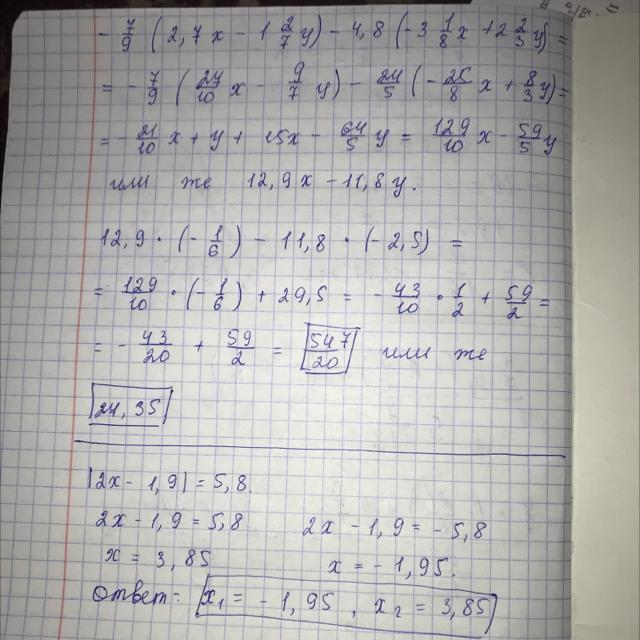 - 7/9 (2,7x - 1 2/7 y) - 4,8 (-3 1/8 x + 2 2/3 y) =
= - 7/9 (27/10 x - 9/7 y) - 24/5 (- 25/8 x + 8/3 y) =
= - 21/10 x + y + 15x - 64/5 y = 129/10 x - 59/5 y
или же 12,9x - 11,8y.
12,9 · (- 1/6) - 11,8 · (-2,5) =
= 129/10 · (- 1/6) + 29,5 = - 43/10 · 1/2 + 59/2 =
= - 43/20 + 59/2 = 547/20 или же
24,35
|2x - 1,9| = 5,8.
2x - 1,9 = 5,8 2x - 1,9 = - 5,8
x = 3,85 x = - 1,95.
Ответ: x1 = - 1,95, x2 = 3,85